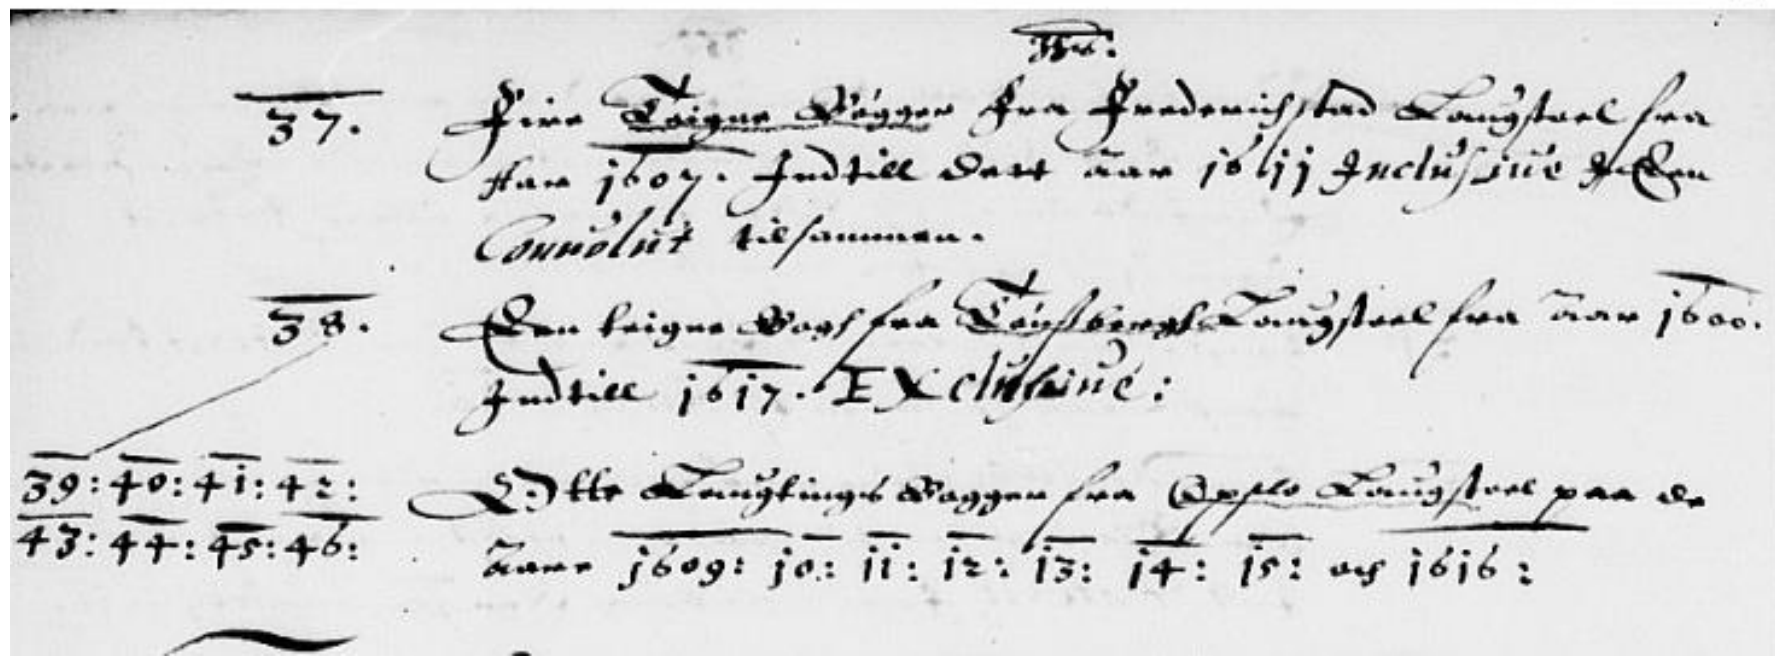 37. Fire Teigne Bøgger fra Frederichstad Laugstoel fra
Aar 1607. Indtill dett aar 1611 Inclusiue J Een
Conuolut tilsammen.
38. Een teigne Bogh fra Tønsbergh Laugstoel fra aar 1600.
Indtill 1617. EXclusiue:
39: 40: 41: 42: Otte Laugtings Bøgger fra Opslo Laugstoel paa de
43: 44: 45: 46: aare 1609: 10: 11: 12: 13: 14: 15: och 1616: